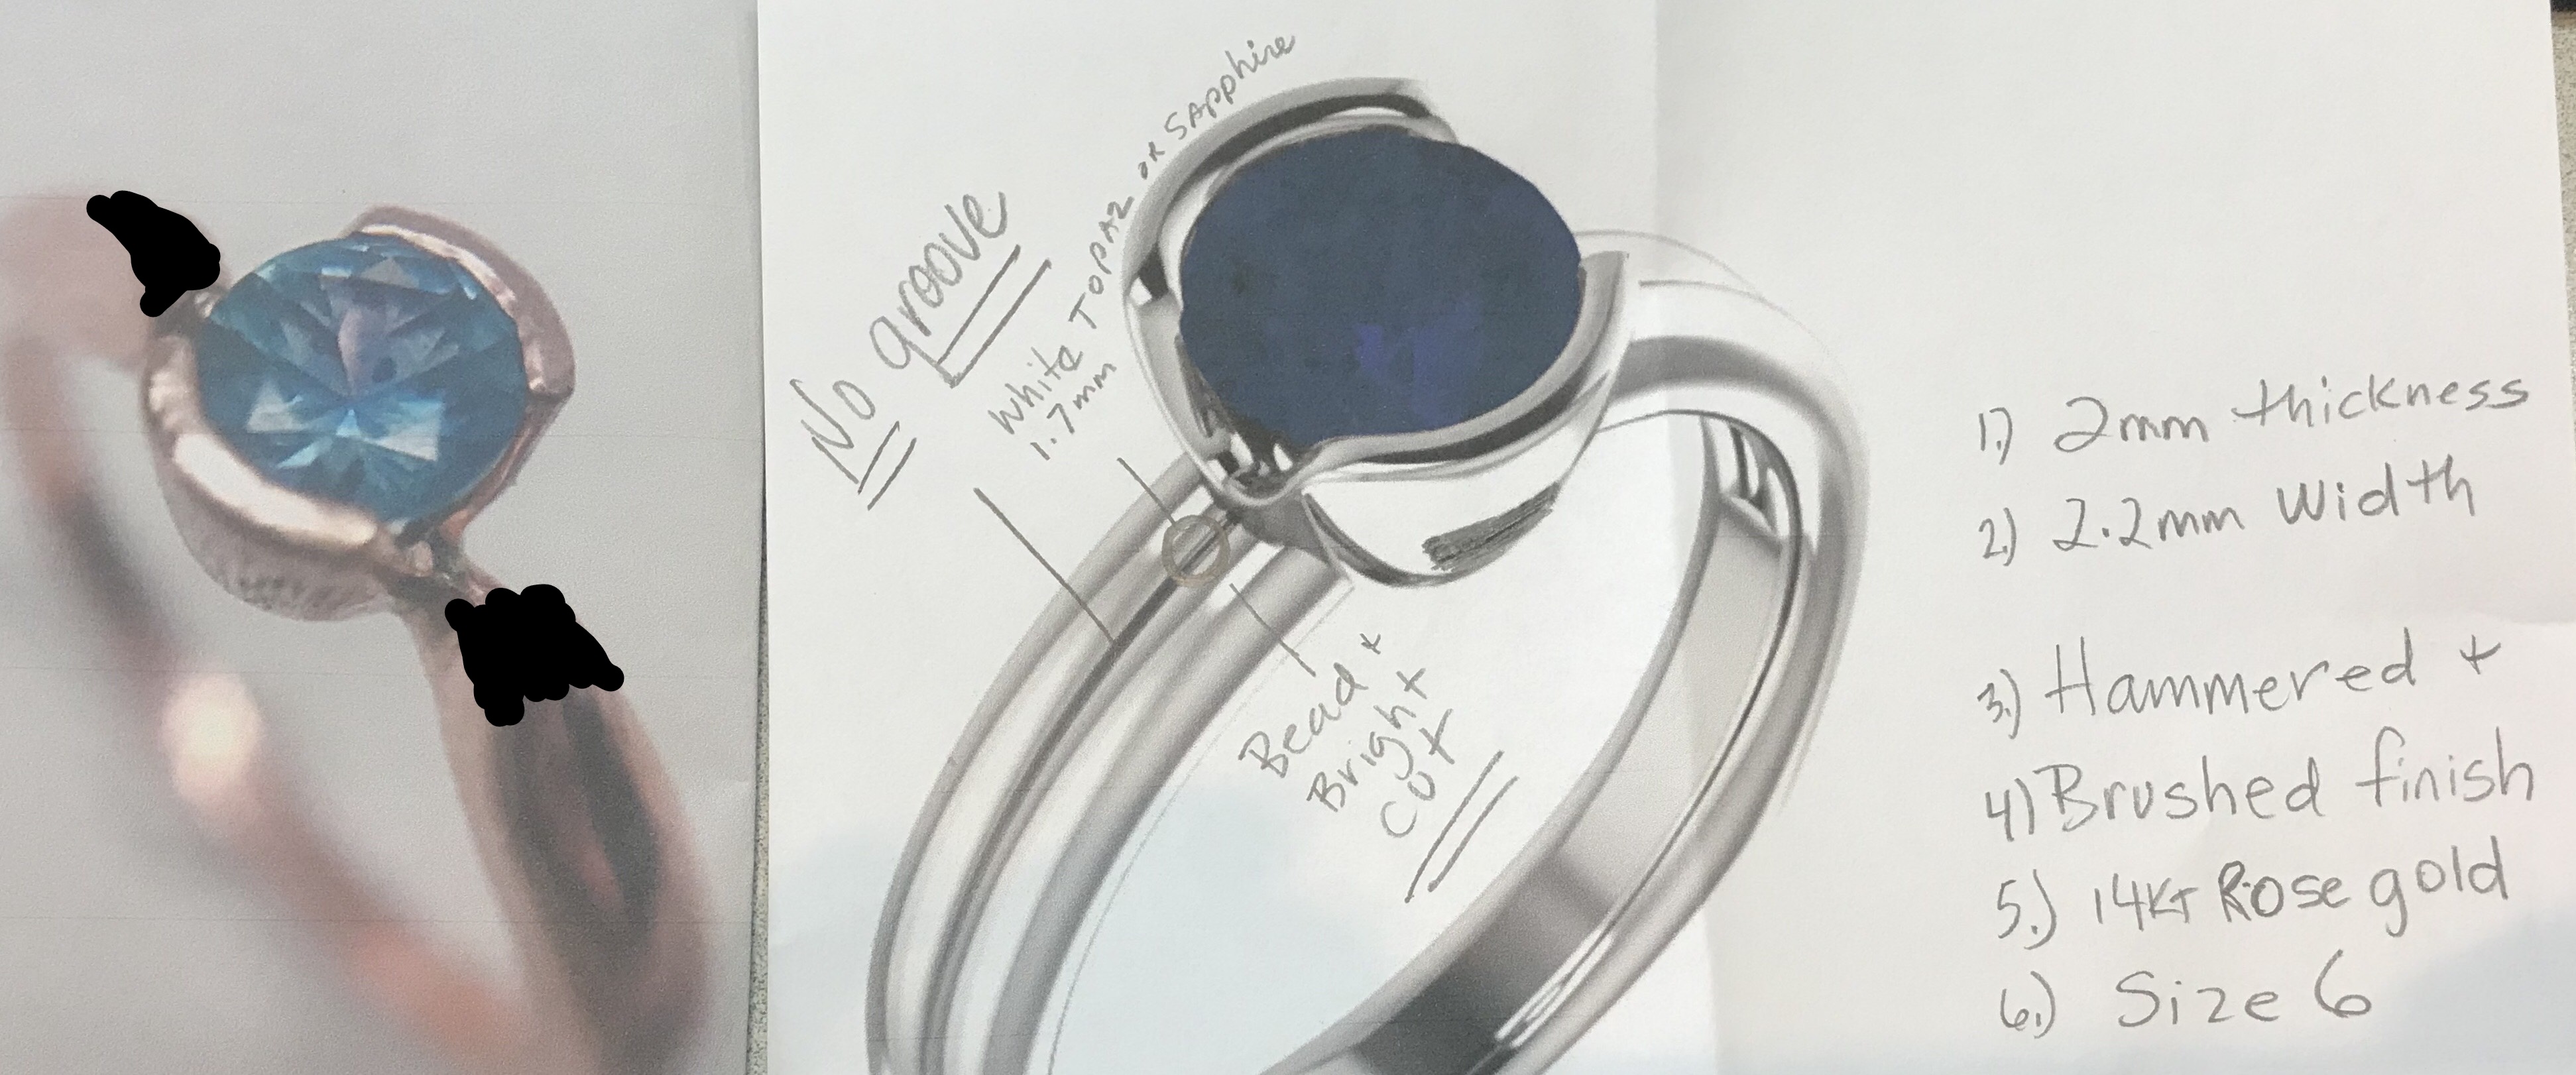 No groove
White TOPAZ OR SAPPhire
1.7mm
Bead +
Bright
CUT
1.) 2mm thickness
2.) 2.2mm Width
3.) Hammered +
4) Brushed finish
5.) 14KT Rose gold
6.) Size 6